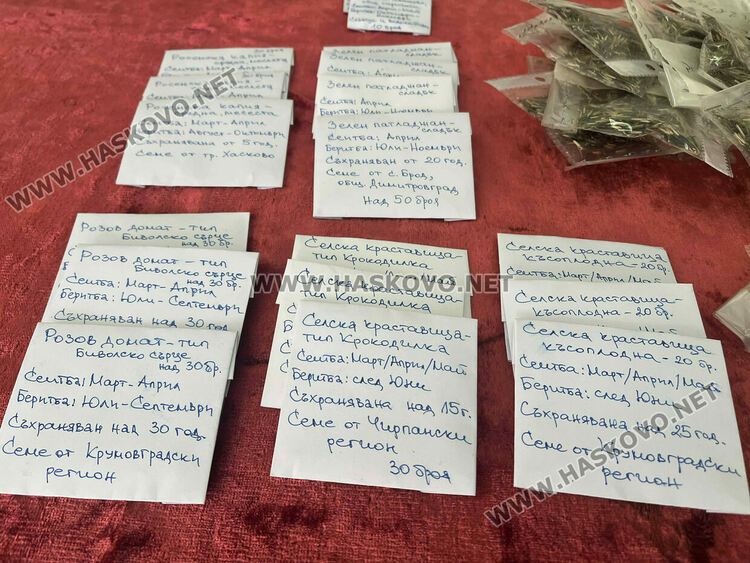 10 броя
30 броя
Сеитба: Март-Април
30 броя
Сеитба: Март-Април
капия-
месеста
Март-Април
Беритба: Август-Октомври
Съхранявана от 5 год.
Семе от гр. Хасково
Зелен патладжан-
Зелен патладжан-
сладък
Сеитба: Април
Зелен патладжан-
сладък
Сеитба: Април
Беритба: Юли-Ноември
Зелен патладжан-
сладък
Сеитба: Април
Беритба: Юли-Ноември
Съхраняван от 20 год.
Семе от с. Брод,
общ. Димитровград
Над 50 броя
Розов домат - тип
Биволско сърце
над 30 бр.
Розов домат - тип
Биволско сърце
над 30 бр.
Сеитба: Март-Април
Беритба: Юли-Септември
Съхраняван над 30 год.
Розов домат - тип
Биволско сърце
над 30 бр.
Сеитба: Март-Април
Беритба: Юли-Септември
Съхраняван над 30 год.
Семе от Крумовградски
регион
Селска краставица-
тип Крокодилка
Селска краставица-
тип Крокодилка
Селска краставица-
тип Крокодилка
Сеитба: Март/Април/Май
Беритба: след Юни
Съхранявана над 15 г.
Семе от Чирпански
регион
30 броя
Селска краставица
късоплодна - 20 бр.
Сеитба: Март/Април/Май
Селска краставица-
късоплодна - 20 бр.
Селска краставица
късоплодна - 20 бр.
Сеитба: Март/Април/Май
Беритба: след Юни
Съхранявана над 25 год.
Семе от Крумовградски
регион
WWW.HASKOVO.NET
WWW.HASKOVO.NET
WWW.HASKOVO.NET
WWW.HASKOVO.NET